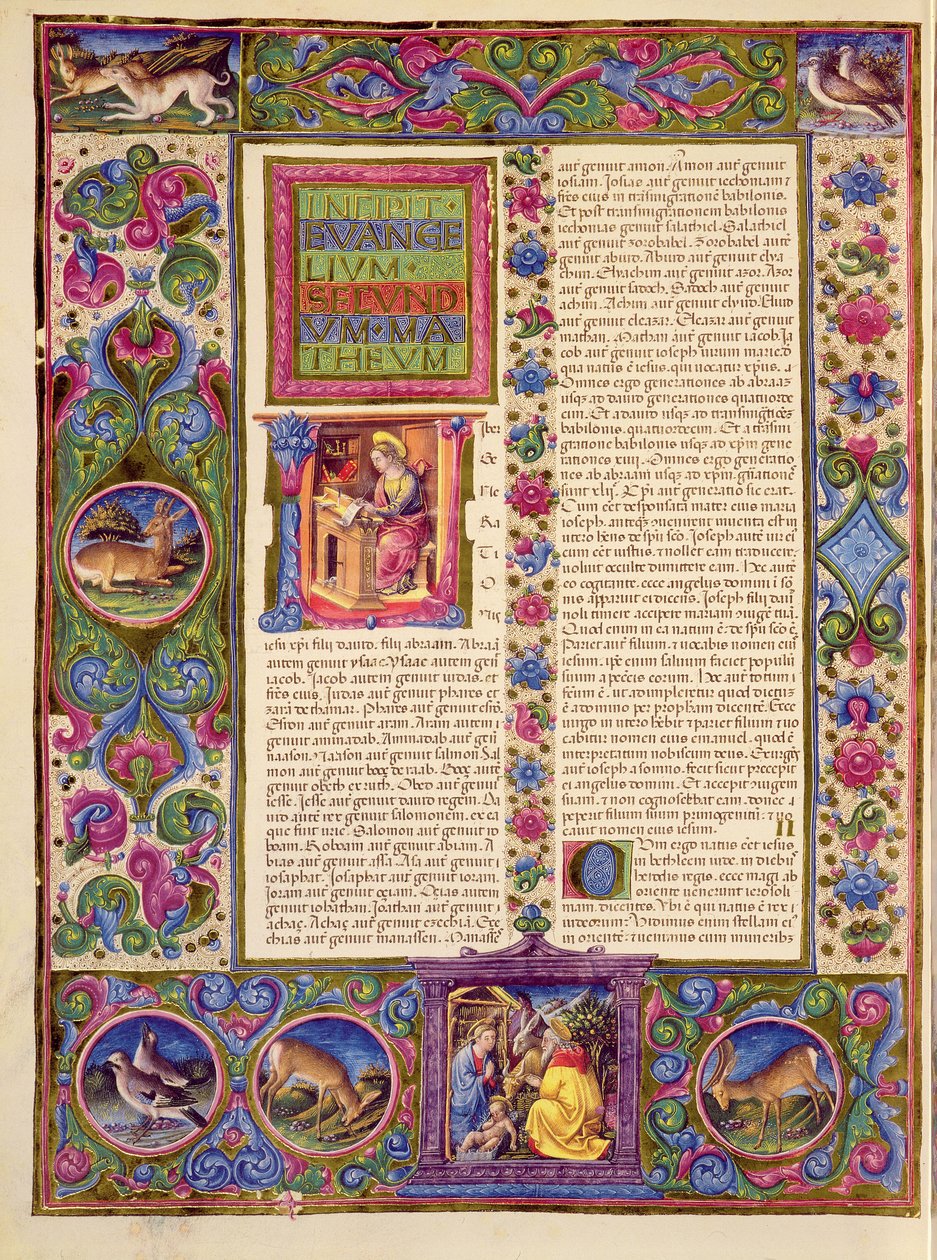 INCIPIT·
EVANGE
LIVM·
SECVND
VM·MA
THEVM
Iber
Ge
Ne
Ra
Ti
O
Nis
iesu xp̄i filii dauid. filii abraam. Abraā
autem genuit ysaac. Ysaac autem geñ
iacob. Iacob autem genuit iudas. et
fr̄es eius. Iudas aut̄ genuit phares et
zarā de thamar. Phares aut̄ genuit esrō.
Esron aut̄ genuit aram. Aram autem
genuit aminadab. Aminadab aut̄ geñ
naason. Naason aut̄ genuit salmon. Sal
mon aut̄ genuit booz de raab. Booz autē
genuit obeth ex ruth. Obed aut̄ genuit
iesse. Iesse aut̄ genuit dauid regem. Da
uid autē rex genuit salomonem. ex ea
que fuit urie. Salomon aut̄ genuit ro
boam. Roboam aut̄ genuit abiam. A
bias aut̄ genuit assa. Asa aut̄ genuit
iosaphat. Iosaphat aut̄ genuit ioram.
Ioram aut̄ genuit oziam. Ozias autem
genuit ioathan. Ioathan aut̄ genuit
achaz. Achaz aut̄ genuit ezechiā. Eze
chias aut̄ genuit manassen. Manasses
aut̄ genuit amon. Amon aut̄ genuit
iosiam. Iosias aut̄ genuit iechoniam ⁊
fr̄es eius in trāsmigrationē babilonis.
Et post transmigrationem babilonis
iechonias genuit salathiel. Salathiel
aut̄ genuit zorobabel. Zorobabel autē
genuit abiud. Abiud aut̄ genuit elya
chim. Elyachim aut̄ genuit azor. Azor
aut̄ genuit sadoch. Sadoch aut̄ genuit
achim. Achim aut̄ genuit elyud. Eliud
aut̄ genuit eleazar. Eleazar aut̄ genuit
mathan. Mathan aut̄ genuit iacob. Ia
cob aut̄ genuit ioseph uirum marie. d
qua natus ē iesus. qui uocatur xp̄us.
Omnes ergo generationes ab abraaz
usqz ad dauid generationes quatuorde
cim. Et a dauid usqz ad transmigr̄oez
babilonis. quatuordecim. Et a trāsmi
gratione babilonis usqz ad xp̄m gene
rationes xiiii. Omnes ergo generatio
nes ab abraam usqz ad xp̄m. gn̄atiōes
sunt xlii. Xp̄i aut̄ generatio sic erat.
Cum eēt desponsata mater eius maria
ioseph. anteqz ꝯuenirent inuenta est in
utero hēns de sp̄u sc̄o. Ioseph autē uir ei
cum eēt iustus. ⁊ nollet eam traducere.
uoluit occulte dimittere eam. Hec autē
eo cogitante. ecce angelus domini ī sō
nis apparuit ei dicens. Ioseph filii dauī
noli timere accipere mariam ꝯiugē tuā.
Quod enim in ea natum ē. de sp̄u sc̄o ē.
Pariet aut̄ filium. ⁊ uocabis nomen eiꝰ
iesum. ip̄e enim saluum faciet populū
suum a pecc̄is eorum. Hec aut̄ totum
fc̄um ē. ut adimpleretur quod dictuz
ē a domino per prophām dicentē. Ecce
uirgo in utero h̄ebit ⁊ pariet filium ⁊ uo
cabitur nomen eius emanuel. quod ē
interpretatum nobiscum deus. Exurgēs
aut̄ ioseph a somno. fecit sicut precepit
ei angelus domini. Et accepit ꝯiugem
suam. ⁊ non cognoscebat eam. donec
peperit filium suum primogenitū. ⁊ uo
cauit nomen eius iesum.
II
CUm ergo natus eēt iesus
in bethleem iude. in diebꝰ
herodis regis. ecce magi ab
oriente uenerunt ierosoli
mam. dicentes. Vbi ē qui natus ē rex
iudeorum? Vidimus enim stellam eiꝰ
in oriente. ⁊ uenimus cum muneribꝫ